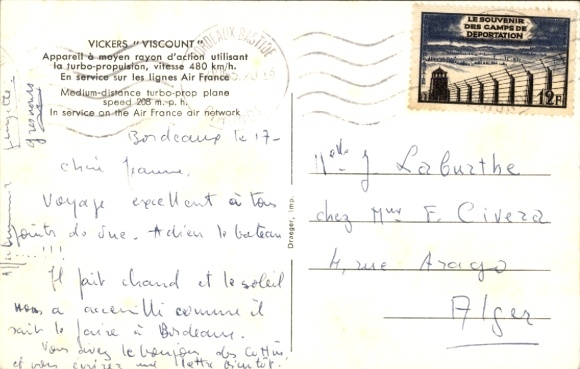 VICKERS "VISCOUNT"
Appareil à moyen rayon d'action utilisant
la turbo-propulsion, vitesse 480 km/h.
En service sur les lignes Air France
Medium-distance turbo-prop plane
speed 208 m. p. h.
In service on the Air France air network
BORDEAUX BASTIDE
LE SOUVENIR
DES CAMPS DE
DEPORTATION
12F
Bordeaux le 17-
chère Jeanne.
Voyage excellent à tous
points de vue. Adieu le bateau
!!!
Il fait chaud et le soleil
nous a accueilli comme il
sait le faire à Bordeaux.
Vous avez le bonjour des
et vous aurez une lettre bientôt.
Draeger, Imp.
Melle J Laburthe
chez Mme F. Civera
4, rue Arago
Alger